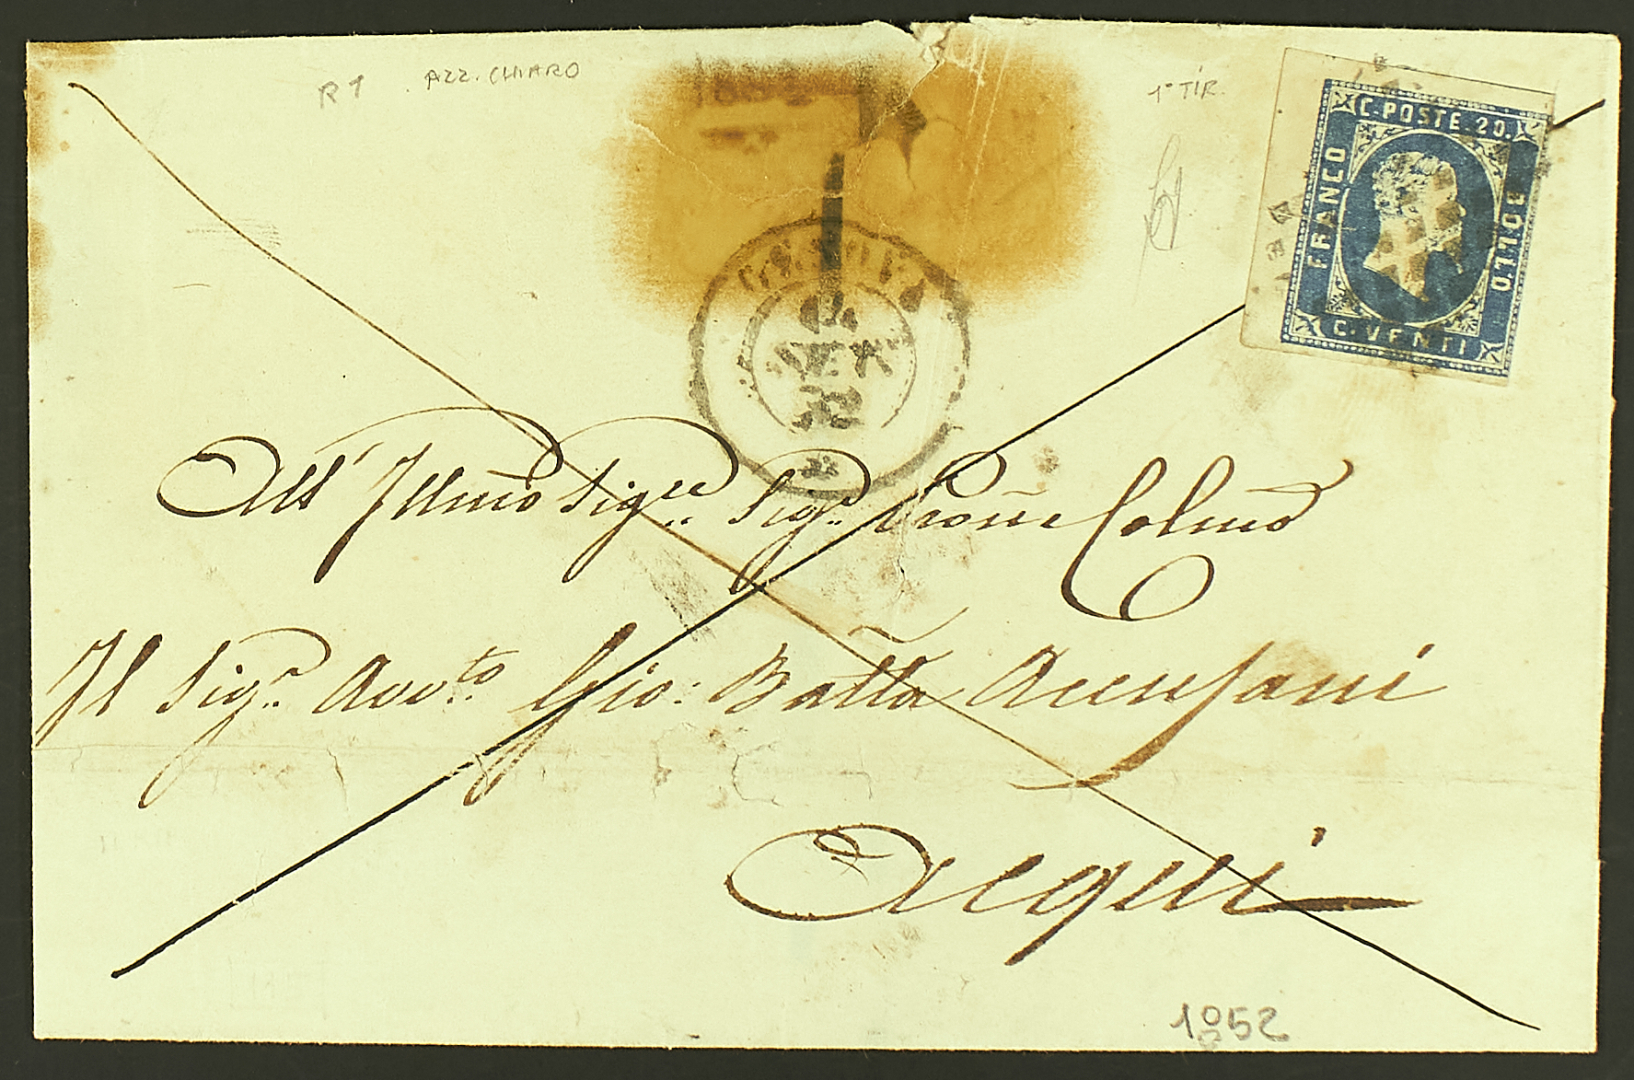 R1 . AZZ. CHIARO
1° TIR.
C. POSTE. 20.
FRANCO
BOLLO
C. VENTI
GENOVA
52
All' Illmo Sigre Sigr Prone Colmo
Il Sigr Avvto Gio: Batta Accusani
Acqui
1852